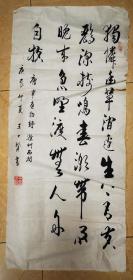 獨憐幽草澗邊生上有黃
鸝深樹鳴春潮帶雨
晚來急野渡無人舟
自橫 唐韋應物詩滁州西澗
夏王書